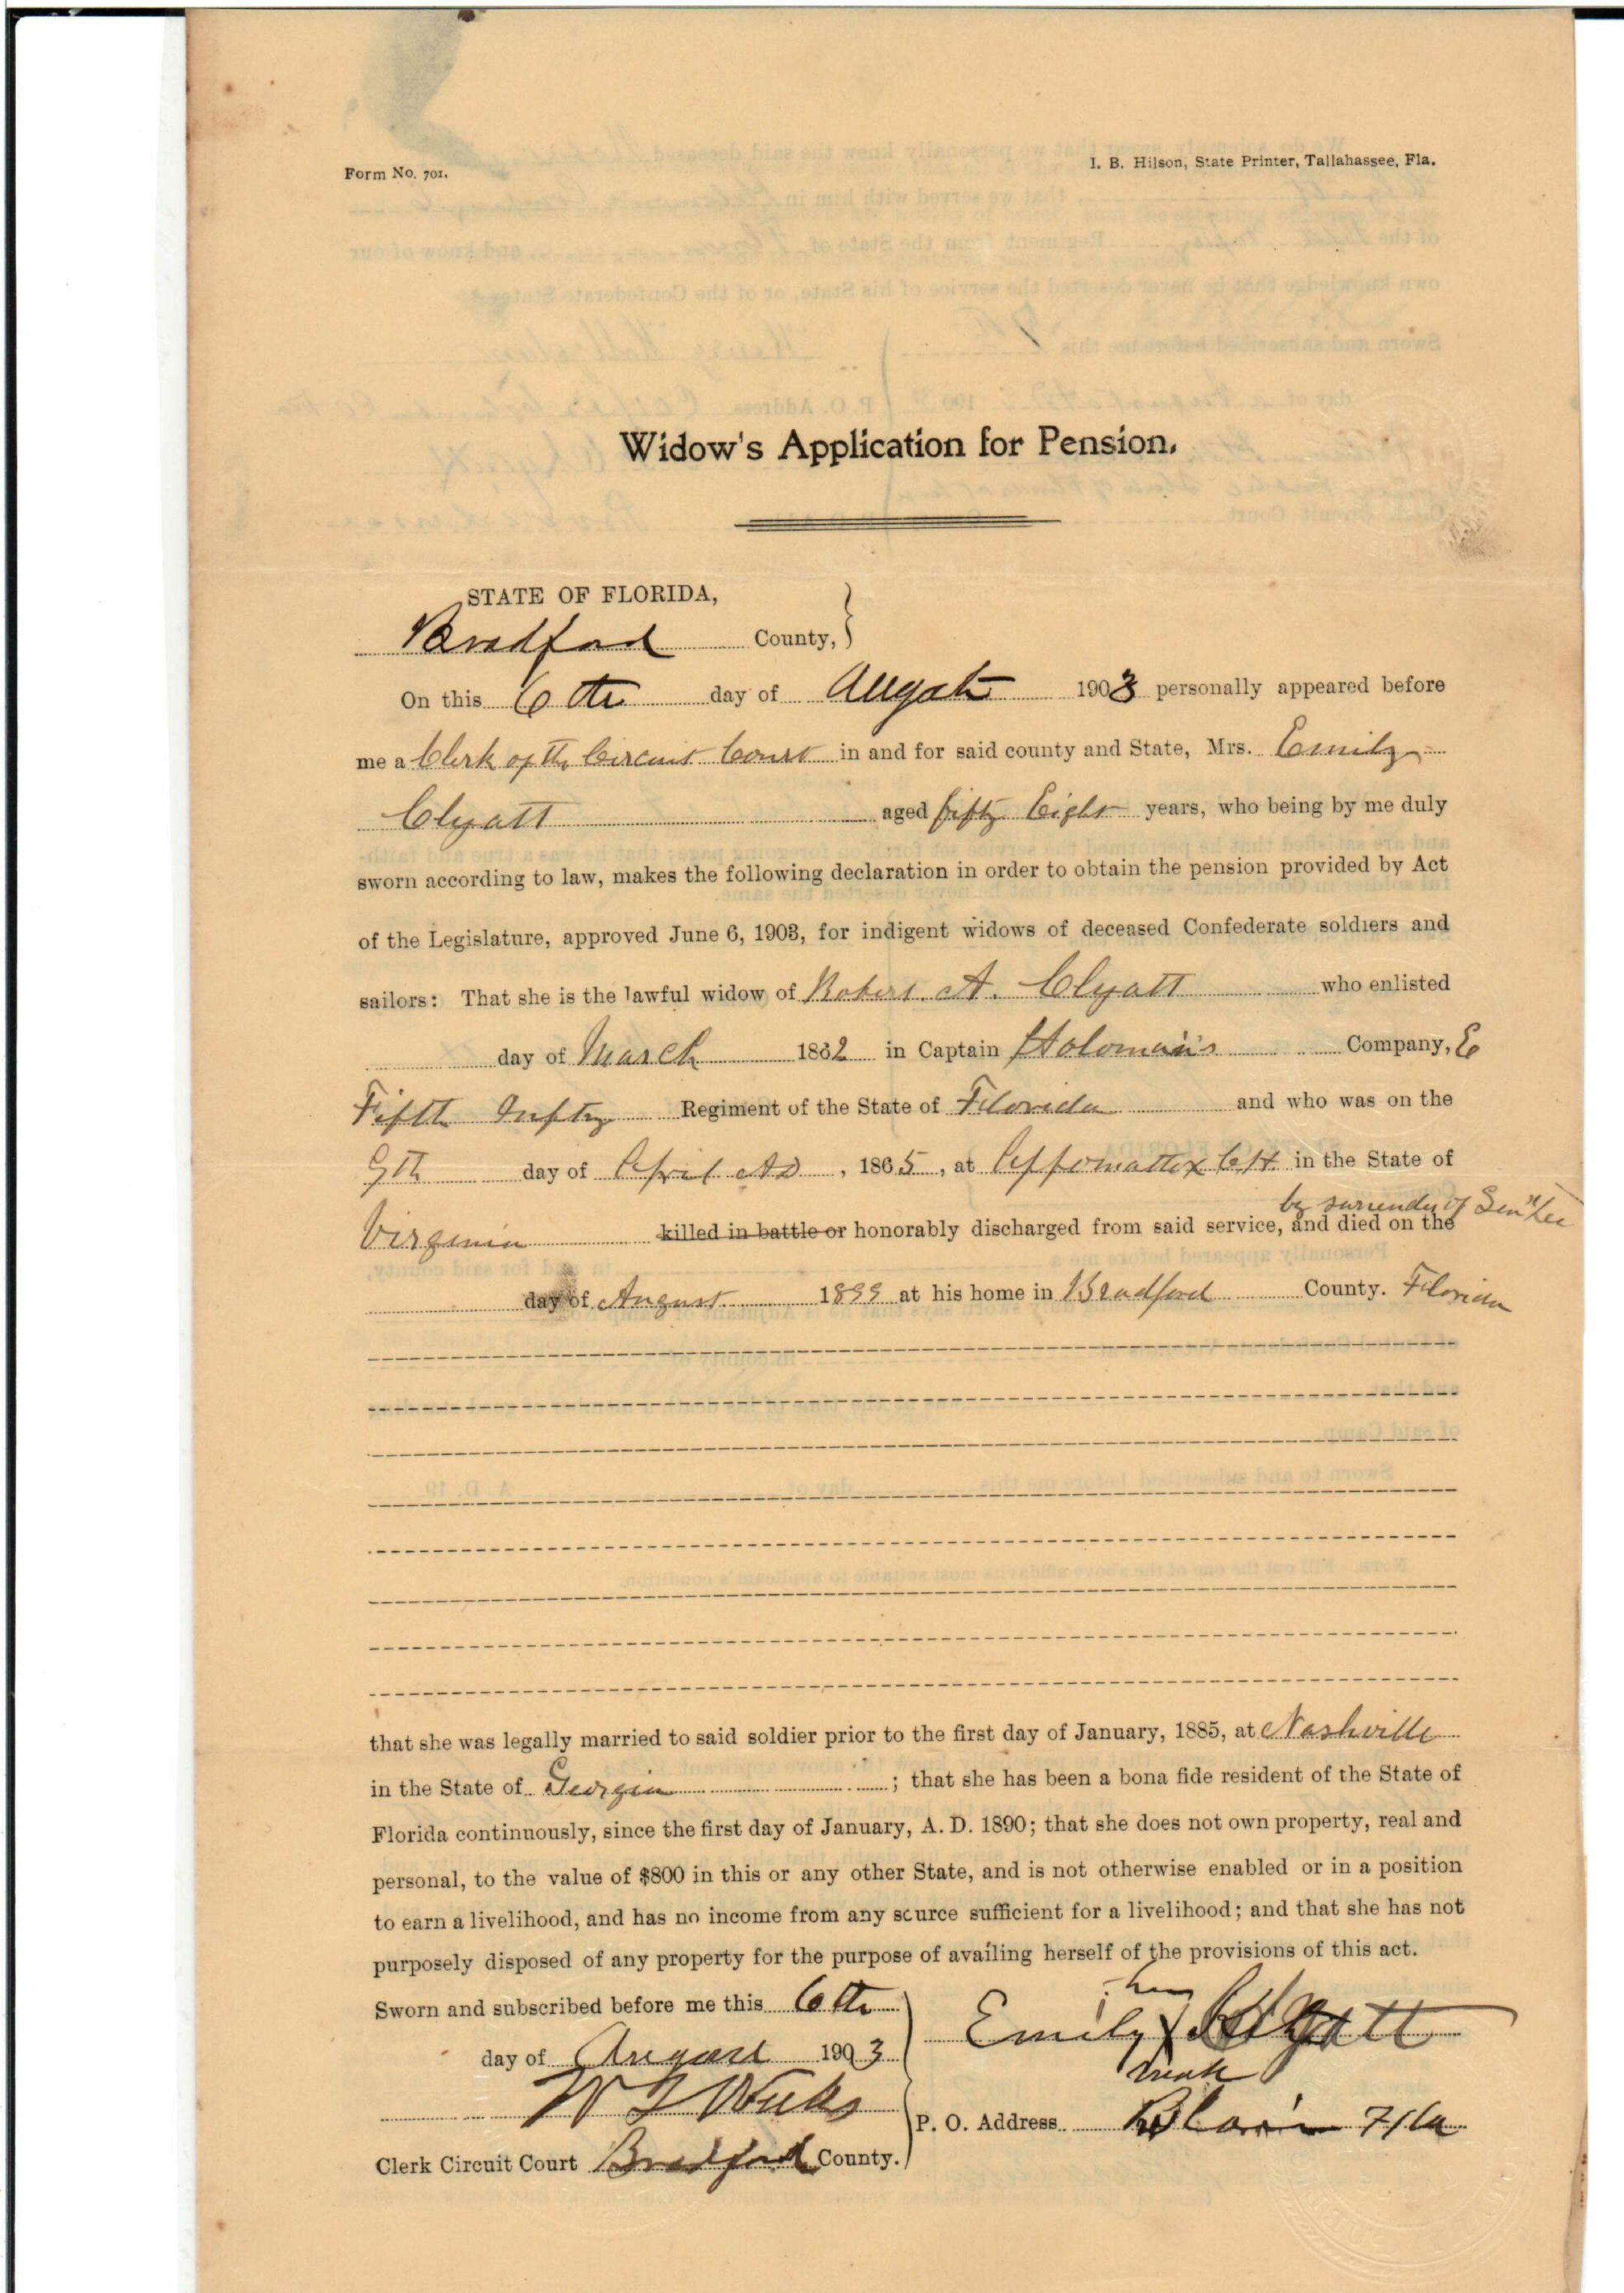 Form No. 701.
I. B. Hilson, State Printer, Tallahassee, Fla.
Widow's Application for Pension.
STATE OF FLORIDA,
Bradford County,
On this 6th day of Augst 1903 personally appeared before
me a Clerk of the Circuit Court in and for said county and State, Mrs. Emily
Clyatt aged fifty Eight years, who being by me duly
sworn according to law, makes the following declaration in order to obtain the pension provided by Act
of the Legislature, approved June 6, 1903, for indigent widows of deceased Confederate soldiers and
sailors: That she is the lawful widow of Robert A. Clyatt who enlisted
day of March 1862 in Captain Holoman's Company, E
Fifth Inftry Regiment of the State of Florida and who was on the
9th day of April AD, 1865, at Appomattox CH in the State of
by surrender of Genl Lee
Virginia killed in battle or honorably discharged from said service, and died on the
day of August 1899 at his home in Bradford County. Florida
that she was legally married to said soldier prior to the first day of January, 1885, at Nashville
in the State of Georgia; that she has been a bona fide resident of the State of
Florida continuously, since the first day of January, A. D. 1890; that she does not own property, real and
personal, to the value of $800 in this or any other State, and is not otherwise enabled or in a position
to earn a livelihood, and has no income from any source sufficient for a livelihood; and that she has not
purposely disposed of any property for the purpose of availing herself of the provisions of this act.
Sworn and subscribed before me this 6th
her
Emily X Clyatt
mark
day of August 1903
W Weeks
P. O. Address Fla
Clerk Circuit Court Bradford County.